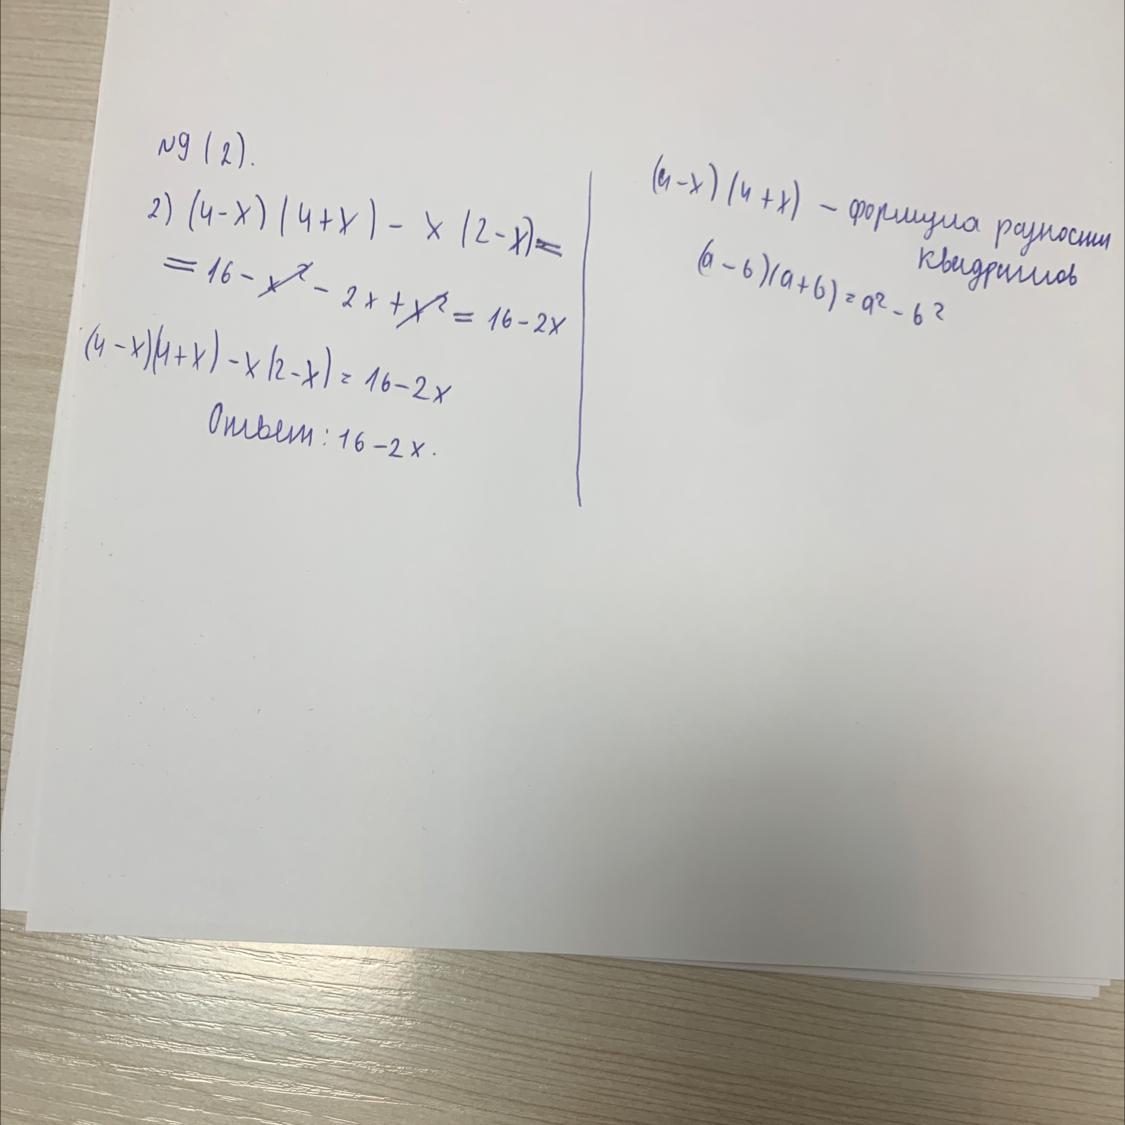 №9 (2).
2) (4-x) (4+x) - x (2-x)=
= 16 - x² - 2x + x² = 16-2x
(4-x)(4+x) - x(2-x) = 16-2x
Ответ: 16-2x.
(4-x) (4+x) - формула разности
квадратов
(a-b)(a+b) = a² - b²